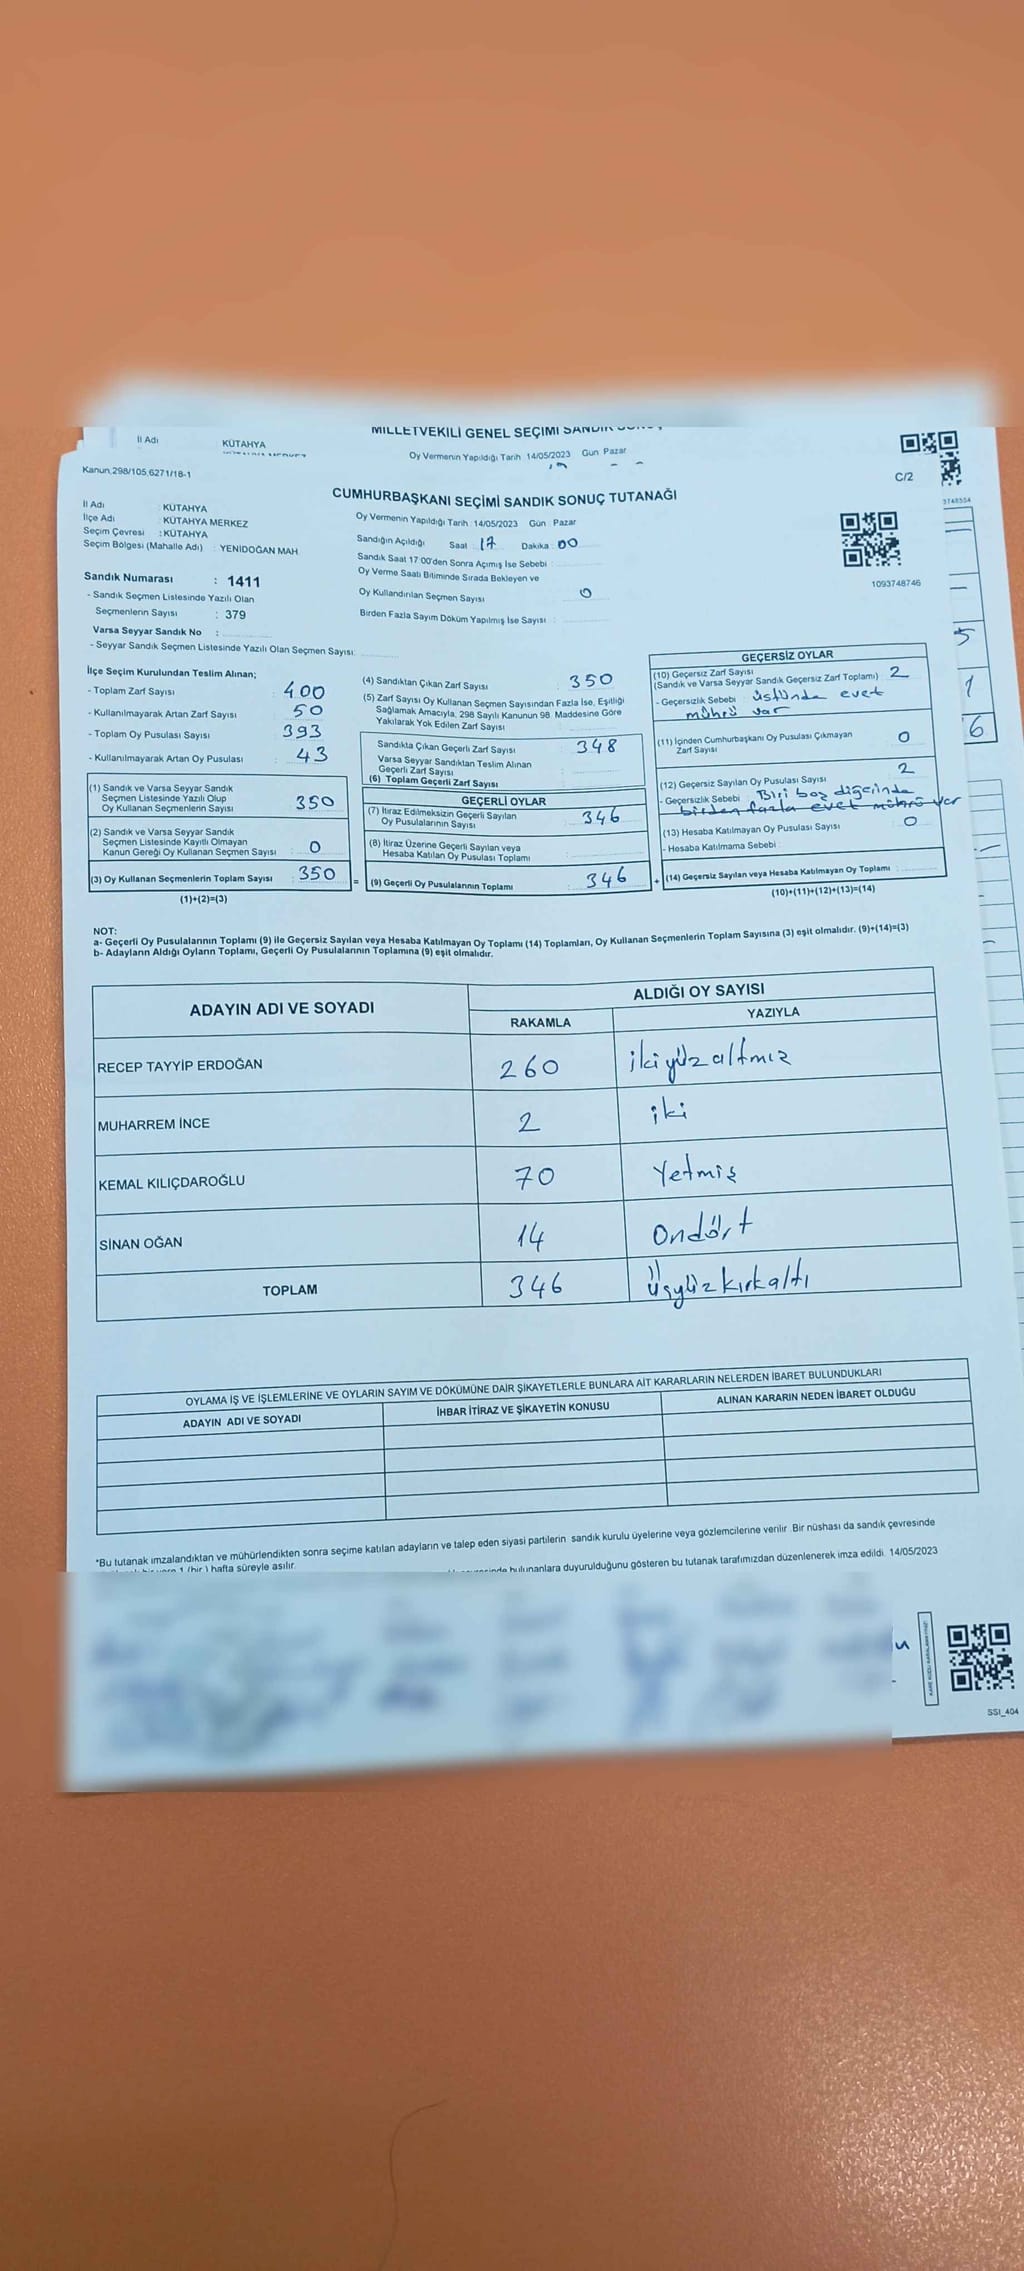 MİLLETVEKİLİ GENEL SEÇİMİ SANDIK
İl Adı KÜTAHYA
Oy Vermenin Yapıldığı Tarih 14/05/2023 Gün Pazar
Kanun,298/105,6271/18-1
C/2
CUMHURBAŞKANI SEÇİMİ SANDIK SONUÇ TUTANAĞI
İl Adı : KÜTAHYA
İlçe Adı : KÜTAHYA MERKEZ
Seçim Çevresi : KÜTAHYA
Seçim Bölgesi (Mahalle Adı) : YENİDOĞAN MAH.
Oy Vermenin Yapıldığı Tarih 14/05/2023 Gün Pazar
Sandığın Açıldığı Saat 17 Dakika 00
Sandık Saat 17:00'den Sonra Açımış İse Sebebi :
Oy Verme Saati Bitiminde Sırada Bekleyen ve
Oy Kullandırılan Seçmen Sayısı 0
Birden Fazla Sayım Döküm Yapılmış İse Sayısı :
1093748746
Sandık Numarası : 1411
- Sandık Seçmen Listesinde Yazılı Olan
Seçmenlerin Sayısı : 379
Varsa Seyyar Sandık No :
- Seyyar Sandık Seçmen Listesinde Yazılı Olan Seçmen Sayısı:
İlçe Seçim Kurulundan Teslim Alınan;
- Toplam Zarf Sayısı : 400
- Kullanılmayarak Artan Zarf Sayısı : 50
- Toplam Oy Pusulası Sayısı : 393
- Kullanılmayarak Artan Oy Pusulası : 43
(1) Sandık ve Varsa Seyyar Sandık
Seçmen Listesinde Yazılı Olup
Oy Kullanan Seçmenlerin Sayısı : 350
(2) Sandık ve Varsa Seyyar Sandık
Seçmen Listesinde Kayıtlı Olmayan
Kanun Gereği Oy Kullanan Seçmen Sayısı : 0
(3) Oy Kullanan Seçmenlerin Toplam Sayısı : 350
(1)+(2)=(3)
(4) Sandıktan Çıkan Zarf Sayısı : 350
(5) Zarf Sayısı Oy Kullanan Seçmen Sayısından Fazla İse, Eşitliği
Sağlamak Amacıyla, 298 Sayılı Kanunun 98. Maddesine Göre
Yakılarak Yok Edilen Zarf Sayısı
Sandıkta Çıkan Geçerli Zarf Sayısı : 348
Varsa Seyyar Sandıktan Teslim Alınan
Geçerli Zarf Sayısı
(6) Toplam Geçerli Zarf Sayısı
GEÇERLİ OYLAR
(7) İtiraz Edilmeksizin Geçerli Sayılan
Oy Pusulalarının Sayısı : 346
(8) İtiraz Üzerine Geçerli Sayılan veya
Hesaba Katılan Oy Pusulası Toplamı
= (9) Geçerli Oy Pusulalarının Toplamı : 346 +
GEÇERSİZ OYLAR
(10) Geçersiz Zarf Sayısı
(Sandık ve Varsa Seyyar Sandık Geçersiz Zarf Toplamı) 2
- Geçersizlik Sebebi : üstünde evet
mührü var
(11) İçinden Cumhurbaşkanı Oy Pusulası Çıkmayan
Zarf Sayısı 0
(12) Geçersiz Sayılan Oy Pusulası Sayısı 2
- Geçersizlik Sebebi : Biri boş diğerinde
birden fazla evet mührü var
(13) Hesaba Katılmayan Oy Pusulası Sayısı 0
- Hesaba Katılmama Sebebi :
(14) Geçersiz Sayılan veya Hesaba Katılmayan Oy Toplamı
(10)+(11)+(12)+(13)=(14)
NOT:
a- Geçerli Oy Pusulalarının Toplamı (9) ile Geçersiz Sayılan veya Hesaba Katılmayan Oy Toplamı (14) Toplamları, Oy Kullanan Seçmenlerin Toplam Sayısına (3) eşit olmalıdır. (9)+(14)=(3)
b- Adayların Aldığı Oyların Toplamı, Geçerli Oy Pusulalarının Toplamına (9) eşit olmalıdır.
ADAYIN ADI VE SOYADI ALDIĞI OY SAYISI
RAKAMLA YAZIYLA
RECEP TAYYİP ERDOĞAN 260 ikiyüzaltmız
MUHARREM İNCE 2 iki
KEMAL KILIÇDAROĞLU 70 Yetmiş
SİNAN OĞAN 14 Ondört
TOPLAM 346 Üçyüzkırkaltı
OYLAMA İŞ VE İŞLEMLERİNE VE OYLARIN SAYIM VE DÖKÜMÜNE DAİR ŞİKAYETLERLE BUNLARA AİT KARARLARIN NELERDEN İBARET BULUNDUKLARI
ADAYIN ADI VE SOYADI İHBAR İTİRAZ VE ŞİKAYETİN KONUSU ALINAN KARARIN NEDEN İBARET OLDUĞU
*Bu tutanak imzalandıktan ve mühürlendikten sonra seçime katılan adayların ve talep eden siyasi partilerin sandık kurulu üyelerine veya gözlemcilerine verilir. Bir nüshası da sandık çevresinde
1 (bir) hafta süreyle asılır.
bulunanlara duyurulduğunu gösteren bu tutanak tarafımızdan düzenlenerek imza edildi. 14/05/2023
SSI_404
5
1
6